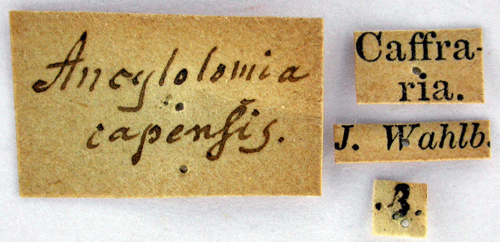 Ancylolomia
capensis.
Caffra-
ria.
J. Wahlb.